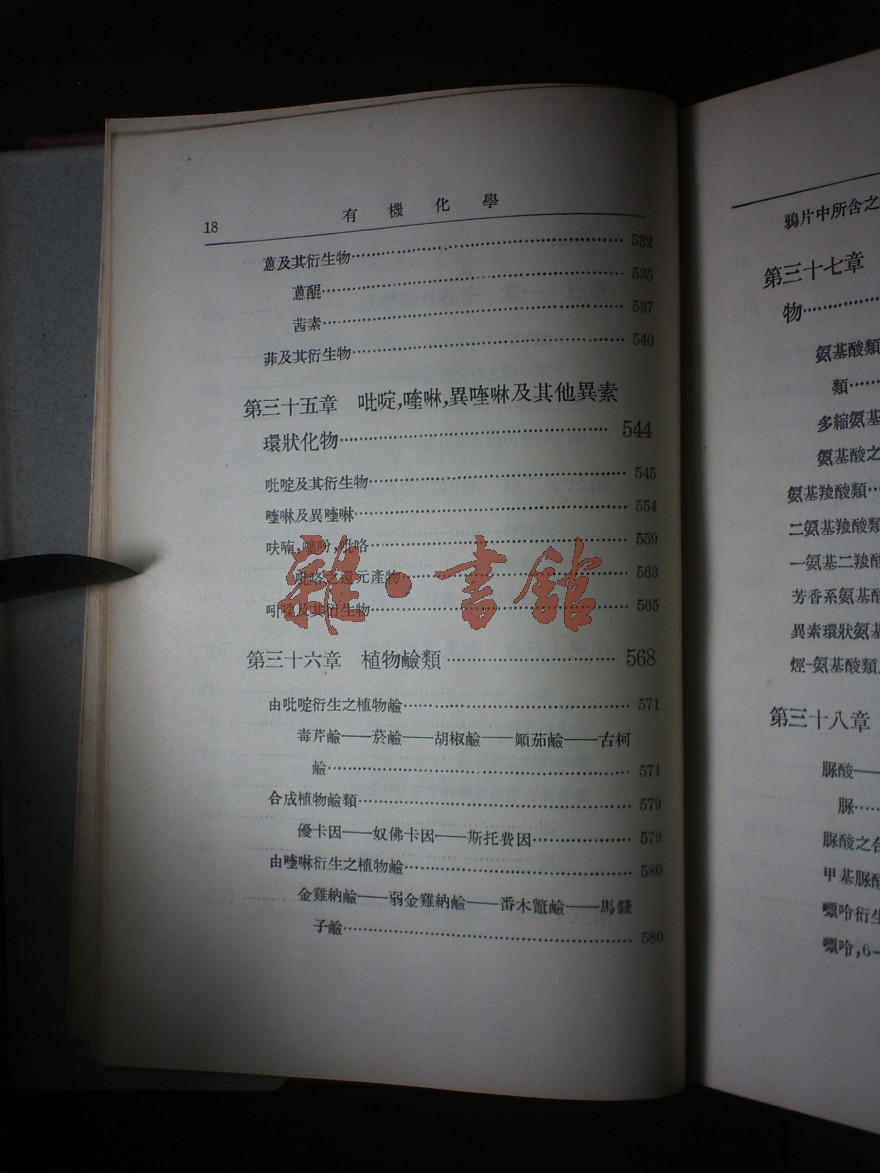 18 有機化學
蒽及其衍生物 532
蒽醌 535
茜素 537
菲及其衍生物 540
第三十五章 吡啶,喹啉,異喹啉及其他異素
環狀化物 544
吡啶及其衍生物 545
喹啉及異喹啉 554
呋喃,噻吩,吡咯 559
吡咯之還元產物 563
吲哚及其衍生物 565
雜·書館
第三十六章 植物鹼類 568
由吡啶衍生之植物鹼 571
毒芹鹼——菸鹼——胡椒鹼——顛茄鹼——古柯
鹼 571
合成植物鹼類 579
優卡因——奴佛卡因——斯托費因 579
由喹啉衍生之植物鹼 580
金雞納鹼——弱金雞納鹼——番木虌鹼——馬錢
子鹼 580
鴉片中所含之
第三十七章
物
氨基酸類
類
多縮氨基
氨基酸之
氨基羧酸類
二氨基羧酸類
一氨基二羧酸
芳香系氨基酸
異素環狀氨基
烴-氨基酸類
第三十八章
脲酸——
脲
脲酸之合
甲基脲酸
嘌呤衍生
嘌呤,6-